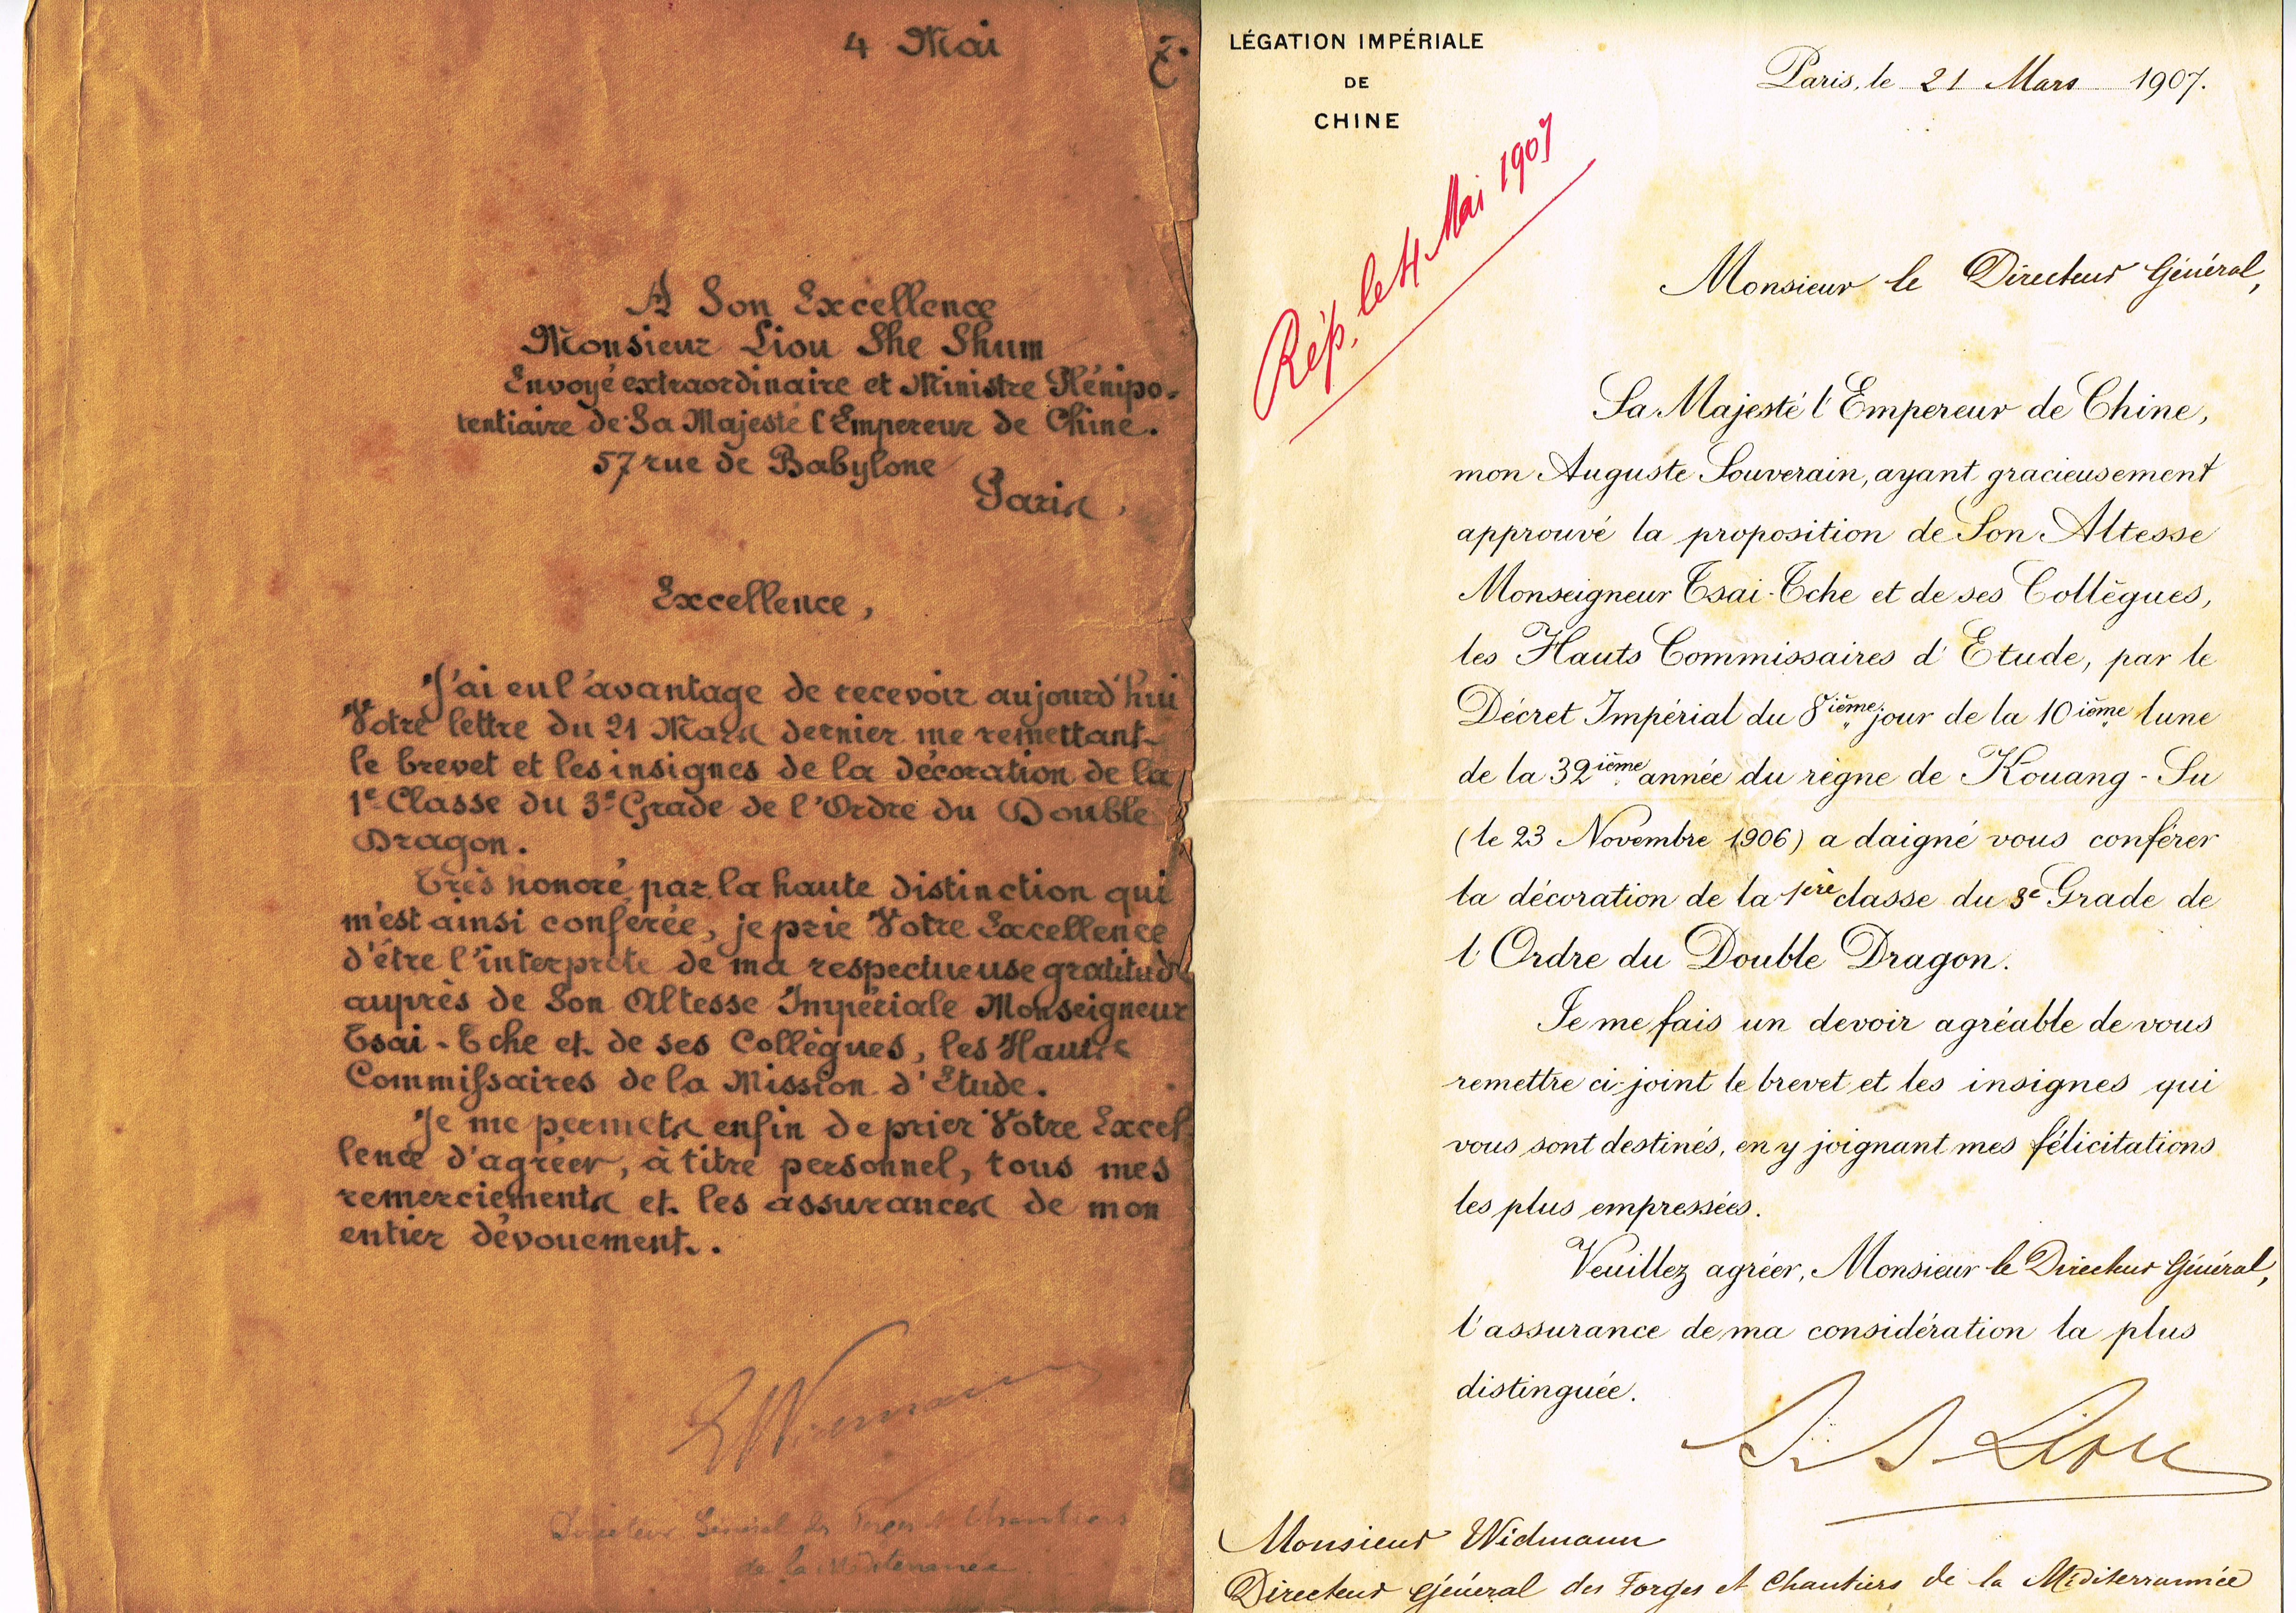 4 Mai
A Son Excellence
Monsieur Liou She Shum
Envoyé extraordinaire et Ministre Plénipo-
tentiaire de Sa Majesté l'Empereur de Chine.
57 rue de Babylone
Paris,
Excellence,
J'ai eu l'avantage de recevoir aujourd'hui
Votre lettre du 21 Mars dernier me remettant
le brevet et les insignes de la décoration de la
1e Classe du 3e Grade de l'Ordre du Double
Dragon.
Très honoré par la haute distinction qui
m'est ainsi conférée, je prie Votre Excellence
d'être l'interprète de ma respectueuse gratitude
auprès de Son Altesse Impériale Monseigneur
Tsai-Tche et de ses Collègues, les Hauts
Commissaires de la Mission d'Etude.
Je me permets enfin de prier Votre Excel
lence d'agréer, à titre personnel, tous mes
remerciements et les assurances de mon
entier dévouement.
Directeur Général des Forges et Chantiers
de la Méditerranée
LÉGATION IMPÉRIALE
DE
CHINE
Paris, le 21 Mars 1907.
Rép. le 4 Mai 1907
Monsieur le Directeur Général,
Sa Majesté l'Empereur de Chine,
mon Auguste Souverain, ayant gracieusement
approuvé la proposition de Son Altesse
Monseigneur Tsai-Tche et de ses Collègues,
les Hauts Commissaires d'Etude, par le
Décret Impérial du 8ième jour de la 10ième lune
de la 32ième année du règne de Kouang-Su
(le 23 Novembre 1906) a daigné vous conférer
la décoration de la 1ère classe du 3e Grade de
l'Ordre du Double Dragon.
Je me fais un devoir agréable de vous
remettre ci-joint le brevet et les insignes qui
vous sont destinés, en y joignant mes félicitations
les plus empressées.
Veuillez agréer, Monsieur le Directeur Général,
l'assurance de ma considération la plus
distinguée.
S. S. Liou
Monsieur Widmann
Directeur Général des Forges et Chantiers de la Méditerrannée